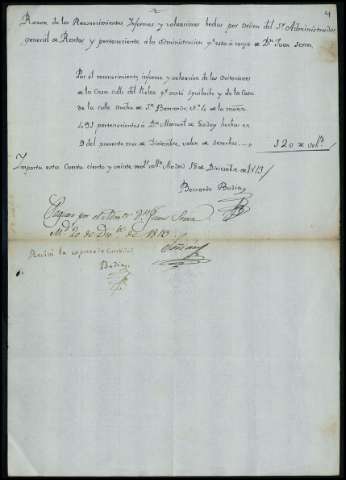 4
Razon de los Reconocimientos Informes y valuaciones hechas por orden del Sr. Administrador
general de Rentas y perteneciente a la Administracion qe. está á cargo de Dn. Juan Serra
Por el reconocimiento, informe y valuacion de los
la Casa calle del y de la Casa
de la calle Ancha de Sn. Bernardo, nº. 4 de la manzª.
493 pertenecientes á Dn. Manuel de Godoy hechas en
9 del presente mes de Diciembre, valen de derechos 120 rs. vn.
Importa esta Cuenta ciento y veinte rs. vn. Madrid 18 de Diciembre de 1813
Bernardo Badia
Pagese por el Admor. Dn. Juan Serra
Md. 20 de Dizbre. de 1813
Recibí la expresada Cantidad
Badia